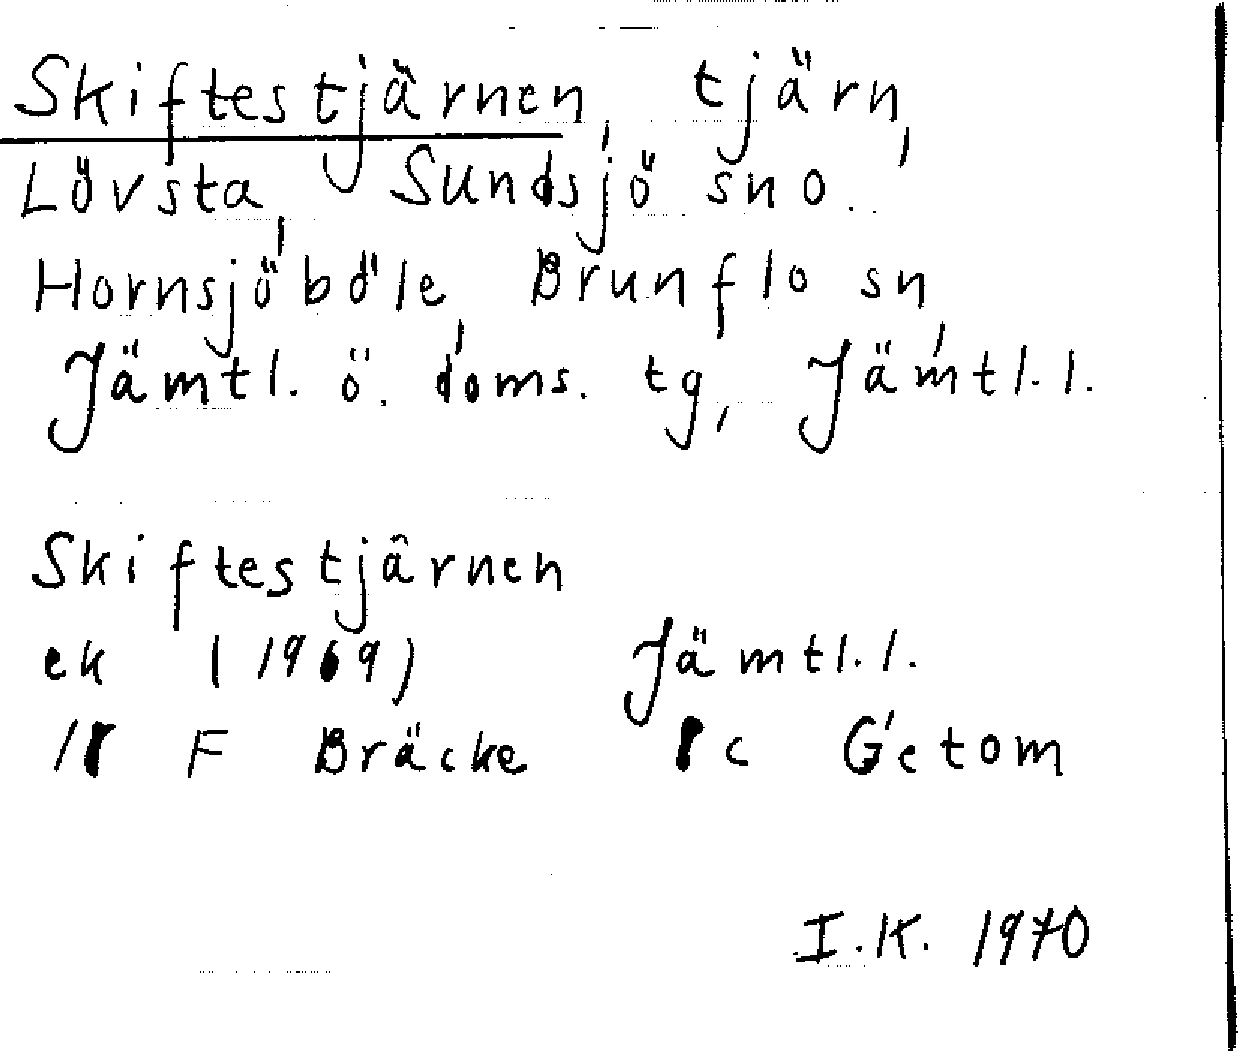 Skiftestjärnen, tjärn,
Lövsta, Sundsjö sn o.
Hornsjöböle, Brunflo sn,
Jämtl. ö. doms. tg, Jämtl. l.
Skiftestjärnen
ek (1969) Jämtl. l.
F Bräcke c Getom
I.K. 1970